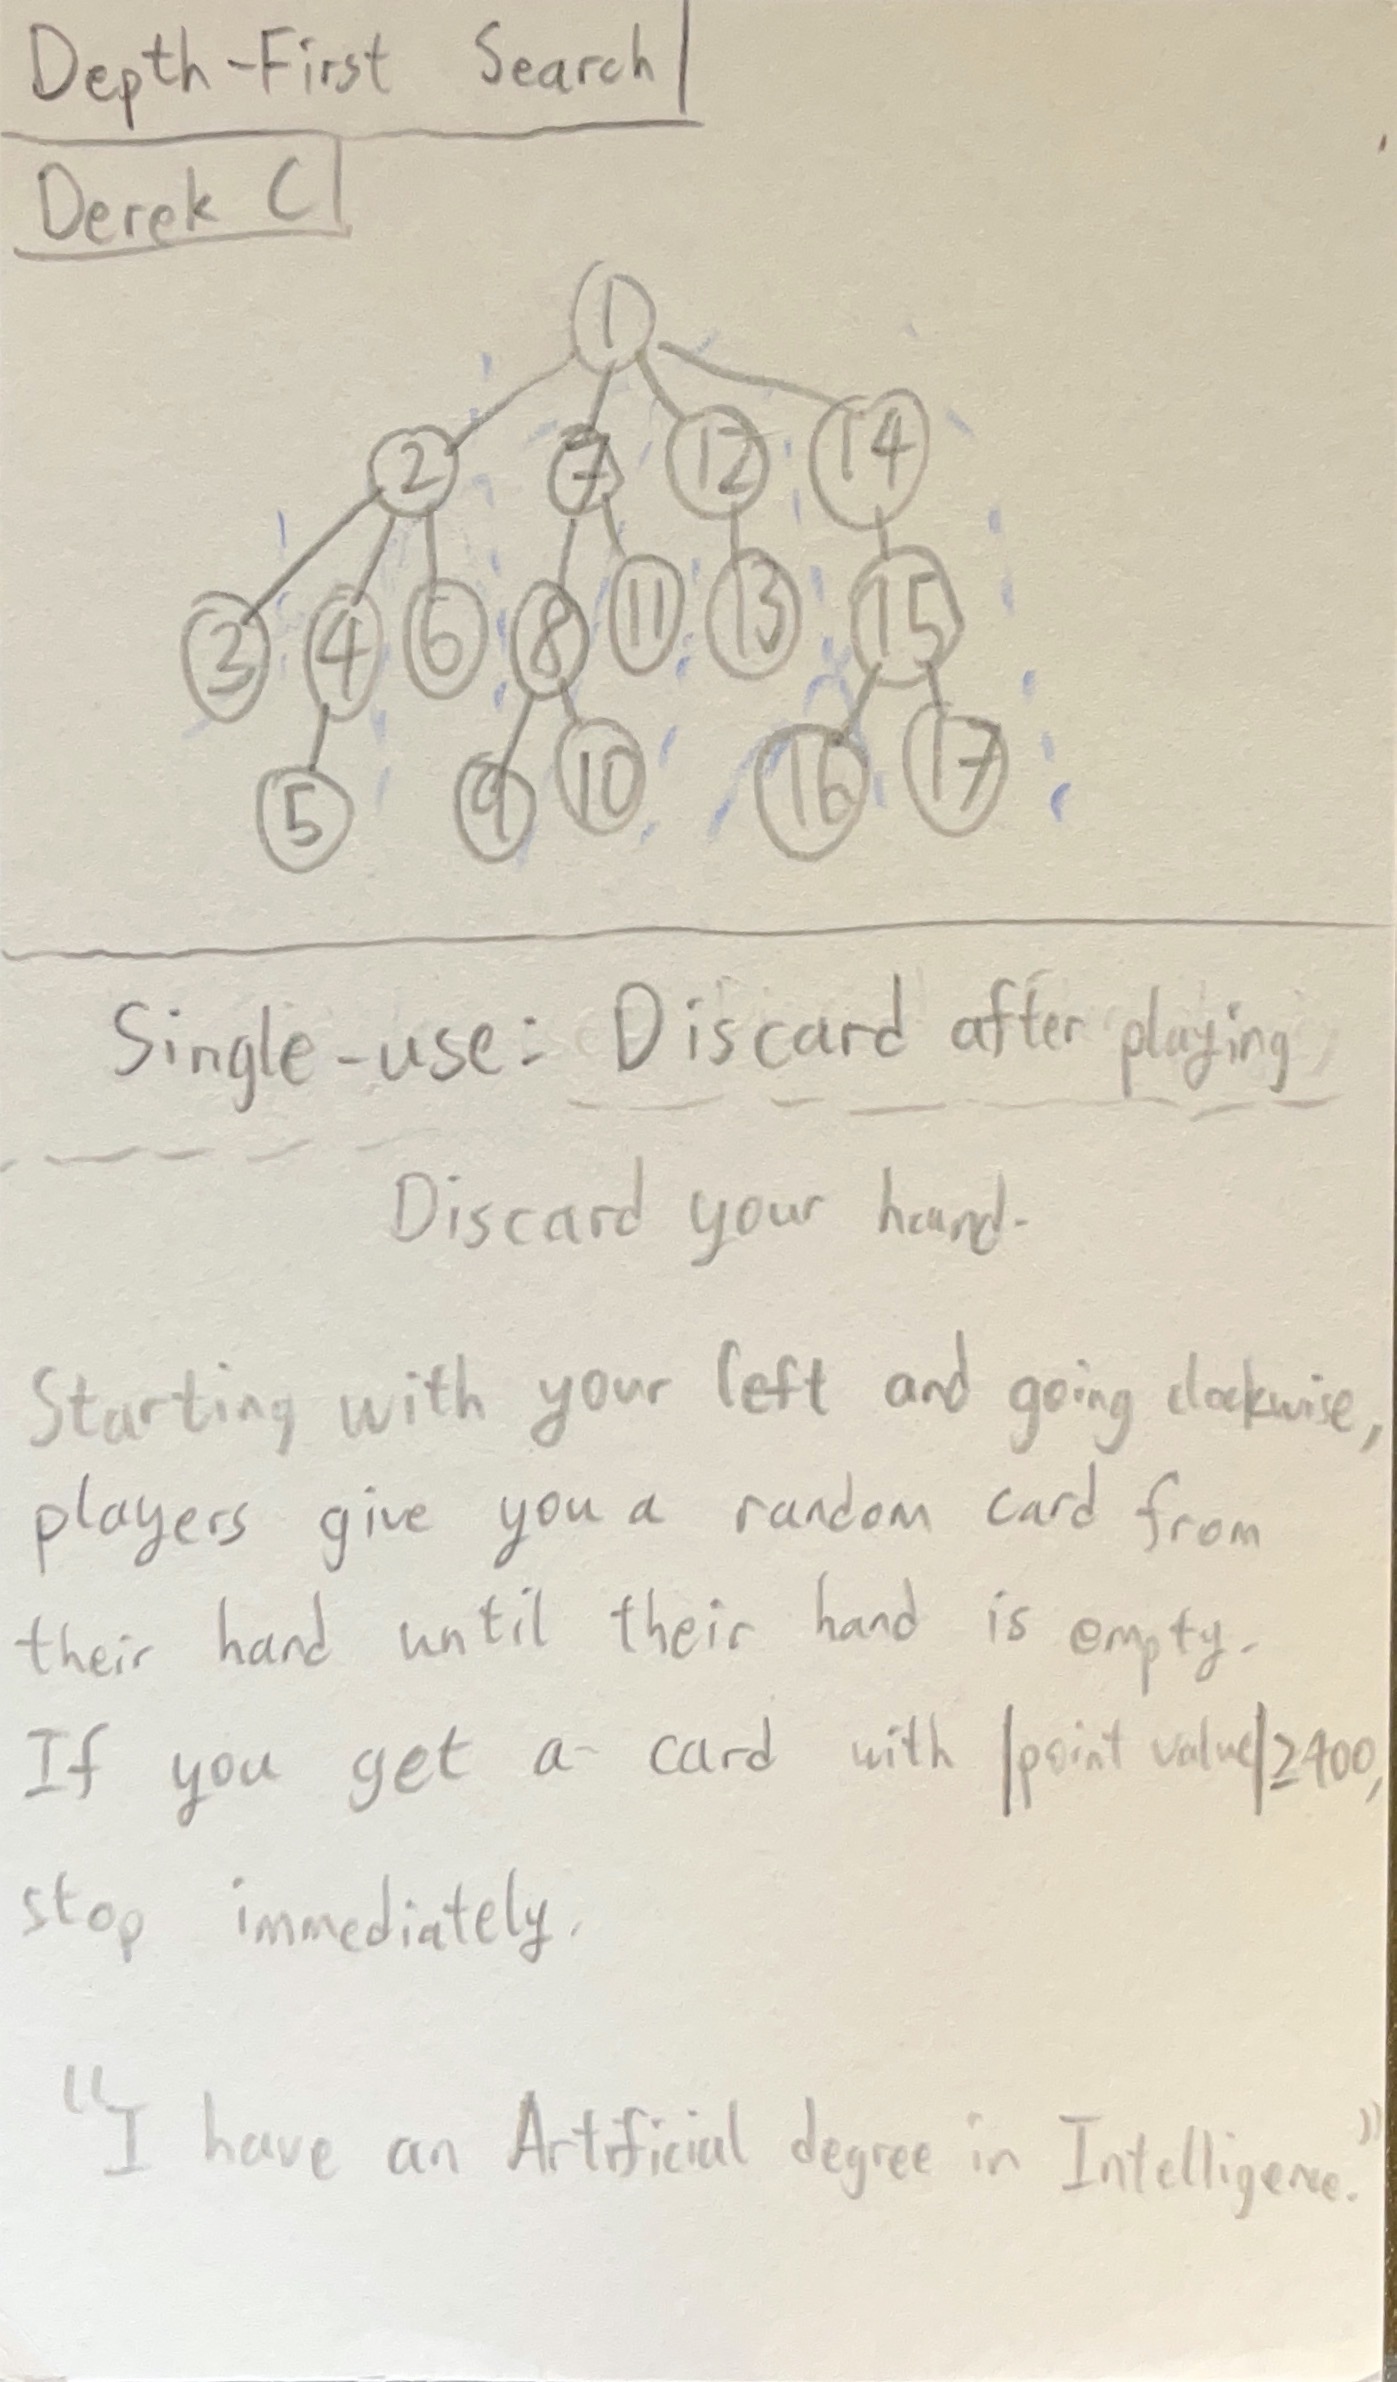 Depth-First Search
Derek C
1
2 7 12 14
3 4 6 8 11 13 15
5 9 10 16 17
Single-use: Discard after playing
Discard your hand.
Starting with your left and going clockwise,
players give you a random card from
their hand until their hand is empty.
If you get a card with |point value|≥400,
stop immediately.
"I have an Artificial degree in Intelligence."